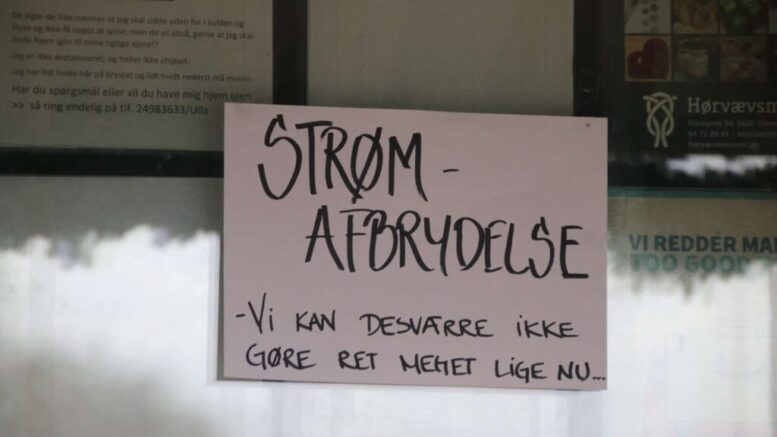 De siger de ikke nænner at jeg skal sidde uden for i kulden og
fryse og ikke få noget at spise, men de vil altså, gerne at jeg skal
finde hjem igen til mine rigtige ejere!?
Jeg er ikke øretatoveret, og heller ikke chipset.
Jeg har lidt hvide hår på brystet og lidt hvidt nederst må maven.
Har du spørgsmål eller vil du have mig hjem igen
>> så ring endelig på tlf. 24983633/Ulla
STRØM-
AFBRYDELSE
-Vi KAN DESVÆRRE iKKE
GØRE RET MEGET LIGE NU...
Hørvævsm
64 72 28 85 | kontakt
VI REDDER MA
TOO GOOD